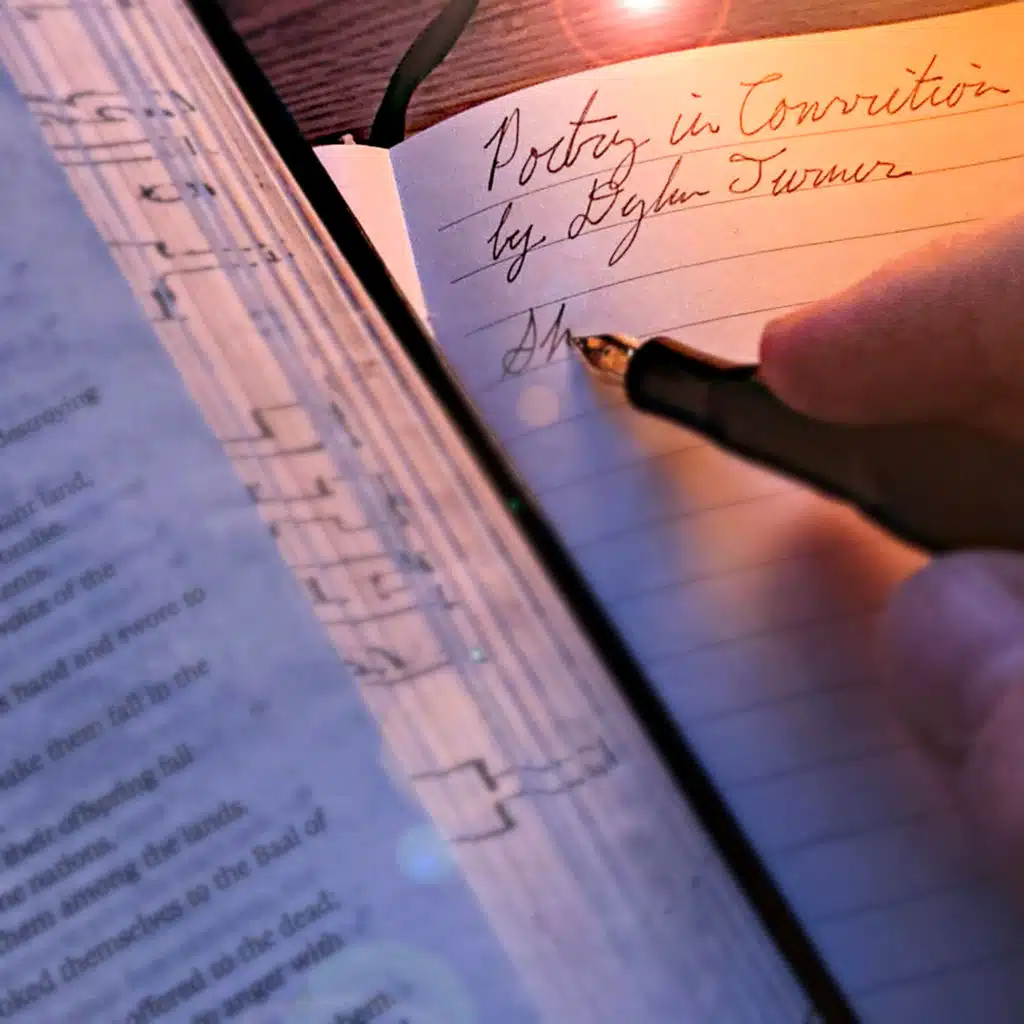 Poetry in Conviction
by Dylan Turner
Sh
destroying
land,
of the
hand and swore to
make them fall in the
their offspring fall
nations,
them among the lands.
oked themselves to the Baal of
offered to the dead;
to anger with
them.